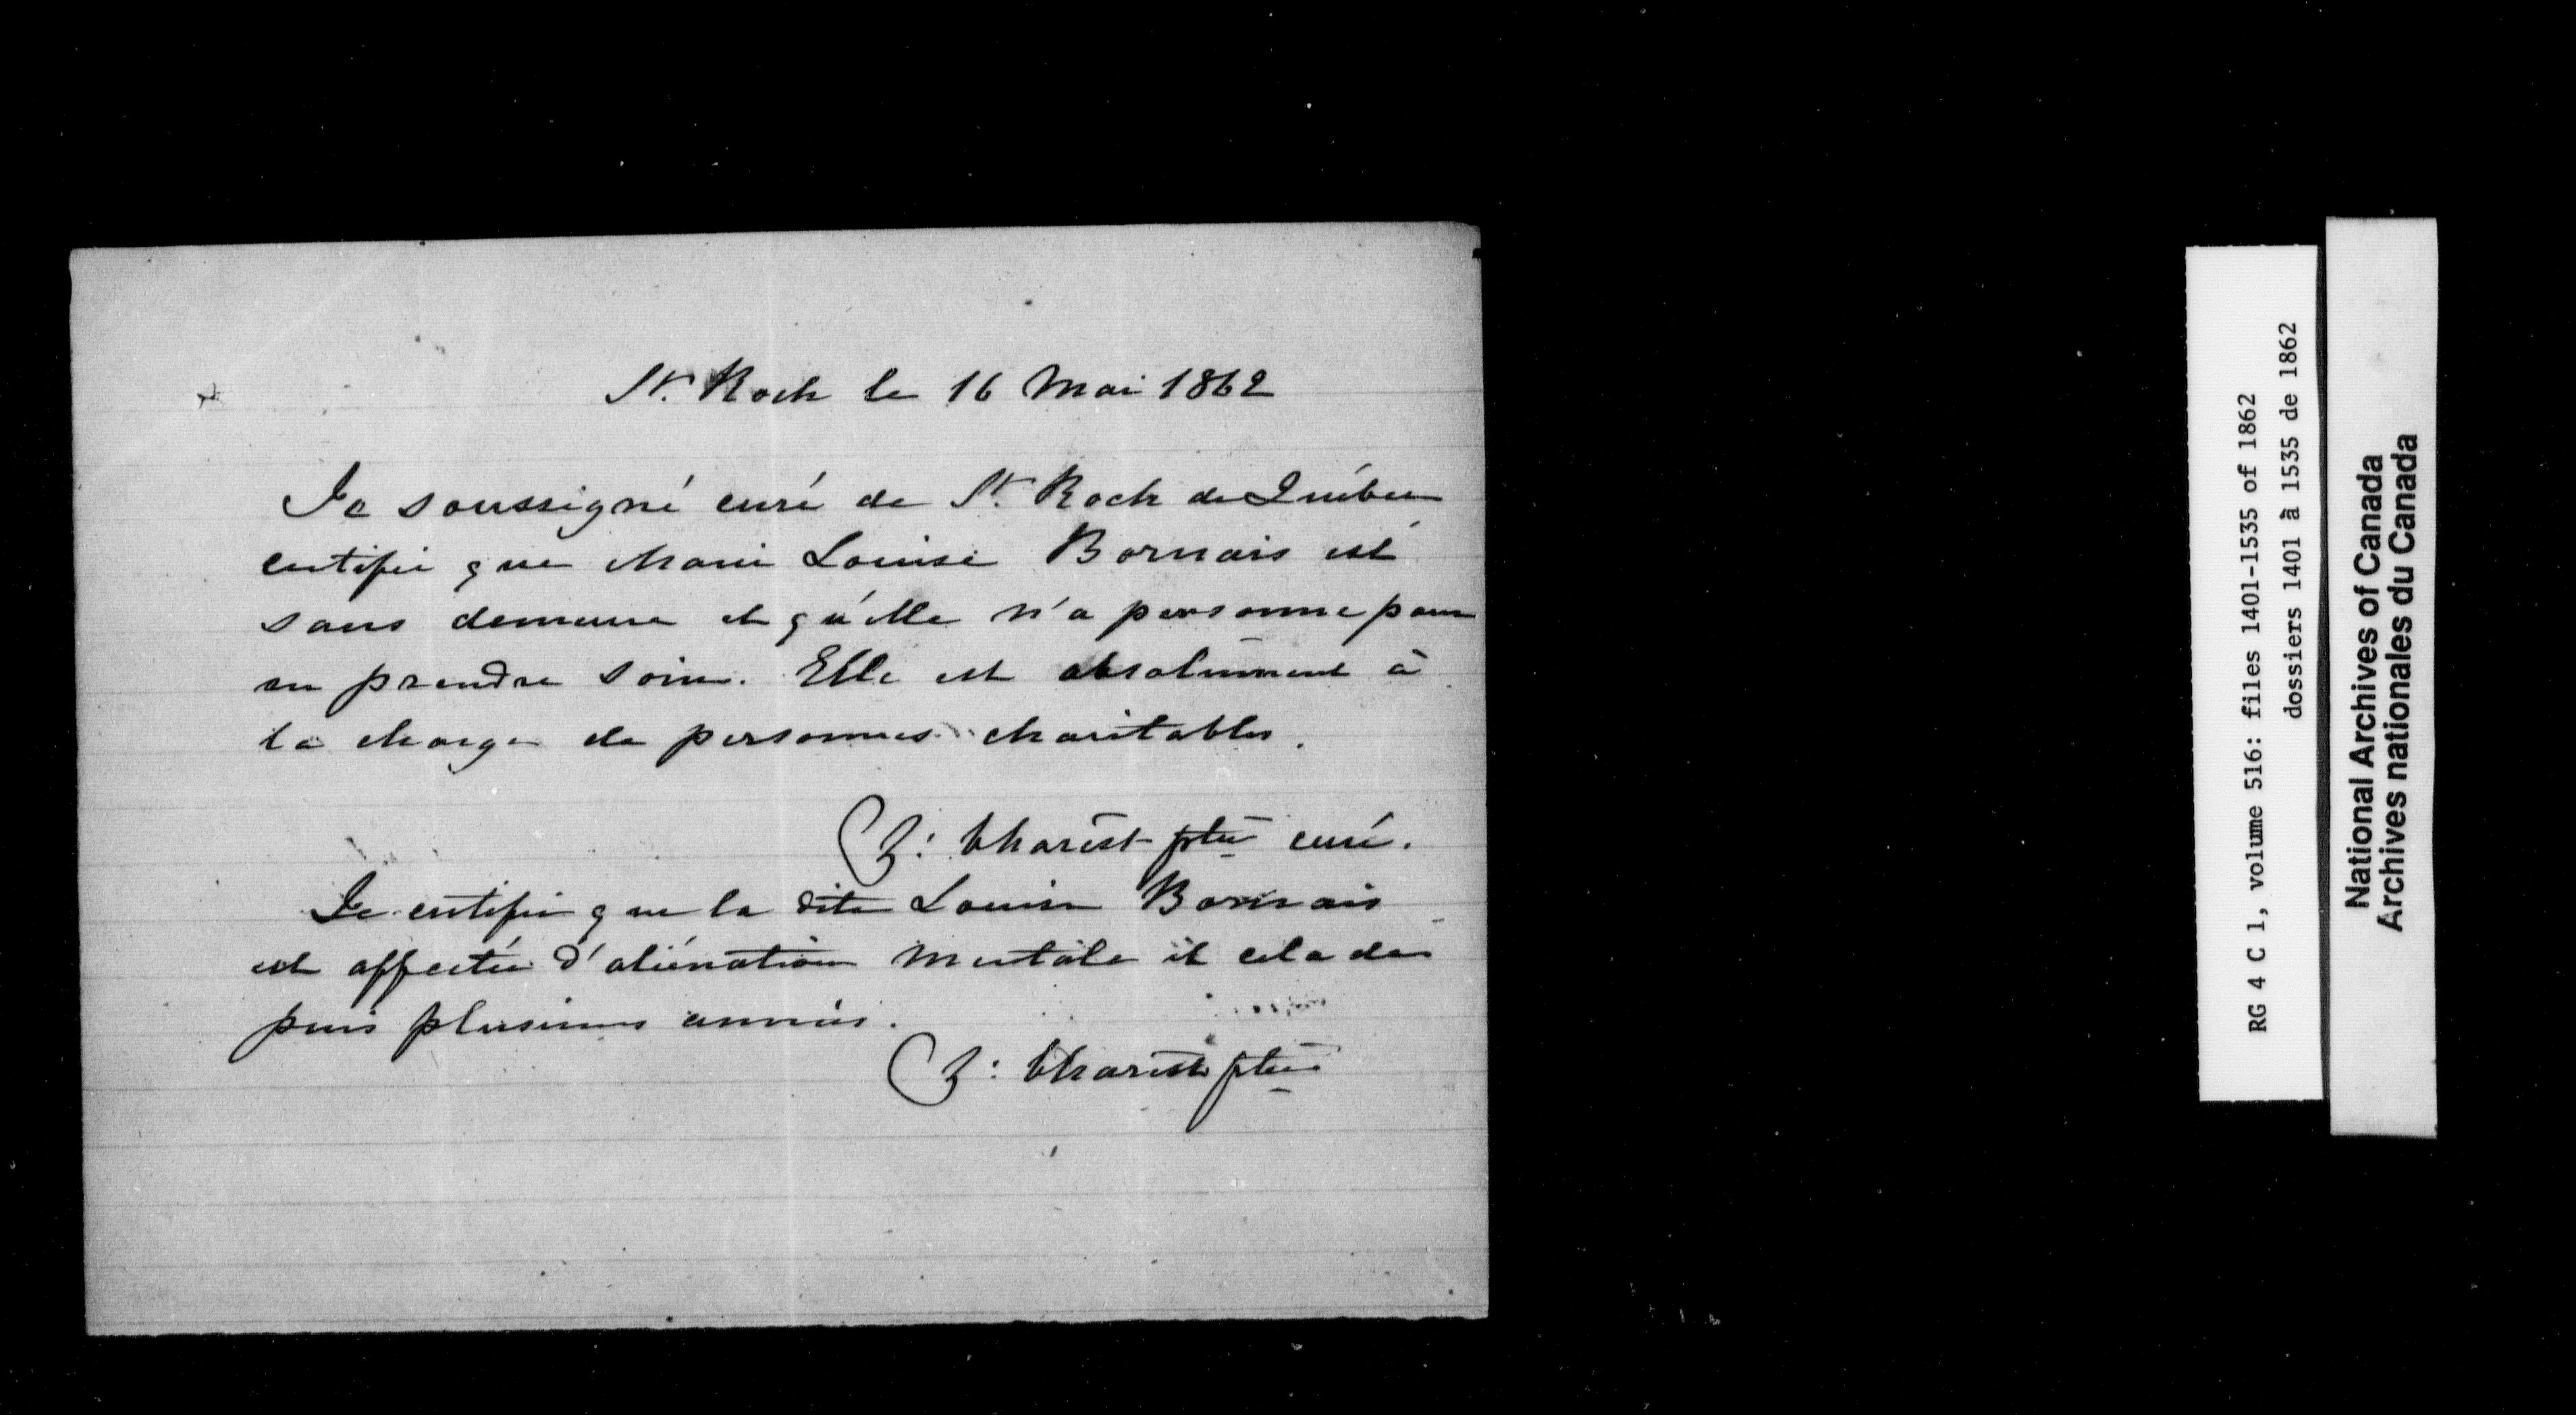 St. Roch le 16 Mai 1862
Je soussigné curé de St. Roch de Québec
certifie que Marie Louise Bornais est
sans demeure et qu'elle n'a personne pour
en prendre soin. Elle est absolument à
la charge de personnes charitables.
Z: Charest ptre curé.
Je certifie que la dite Louise Bornais
est affectée d'aliénation mentale et cela de
puis plusieurs années.
Z: Charest ptre
RG 4 C 1, volume 516: files 1401-1535 of 1862
dossiers 1401 à 1535 de 1862
National Archives of Canada
Archives nationales du Canada